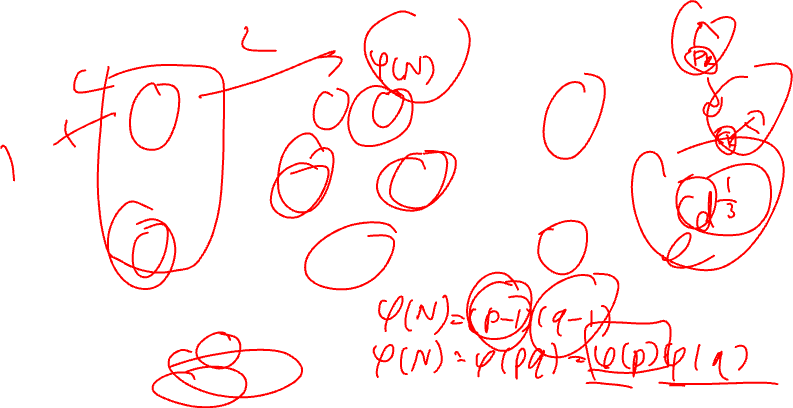 2
φ(N)
1
1/3
φ(N) = (p-1)(q-1)
φ(N) = φ(pq) = φ(p)φ(q)